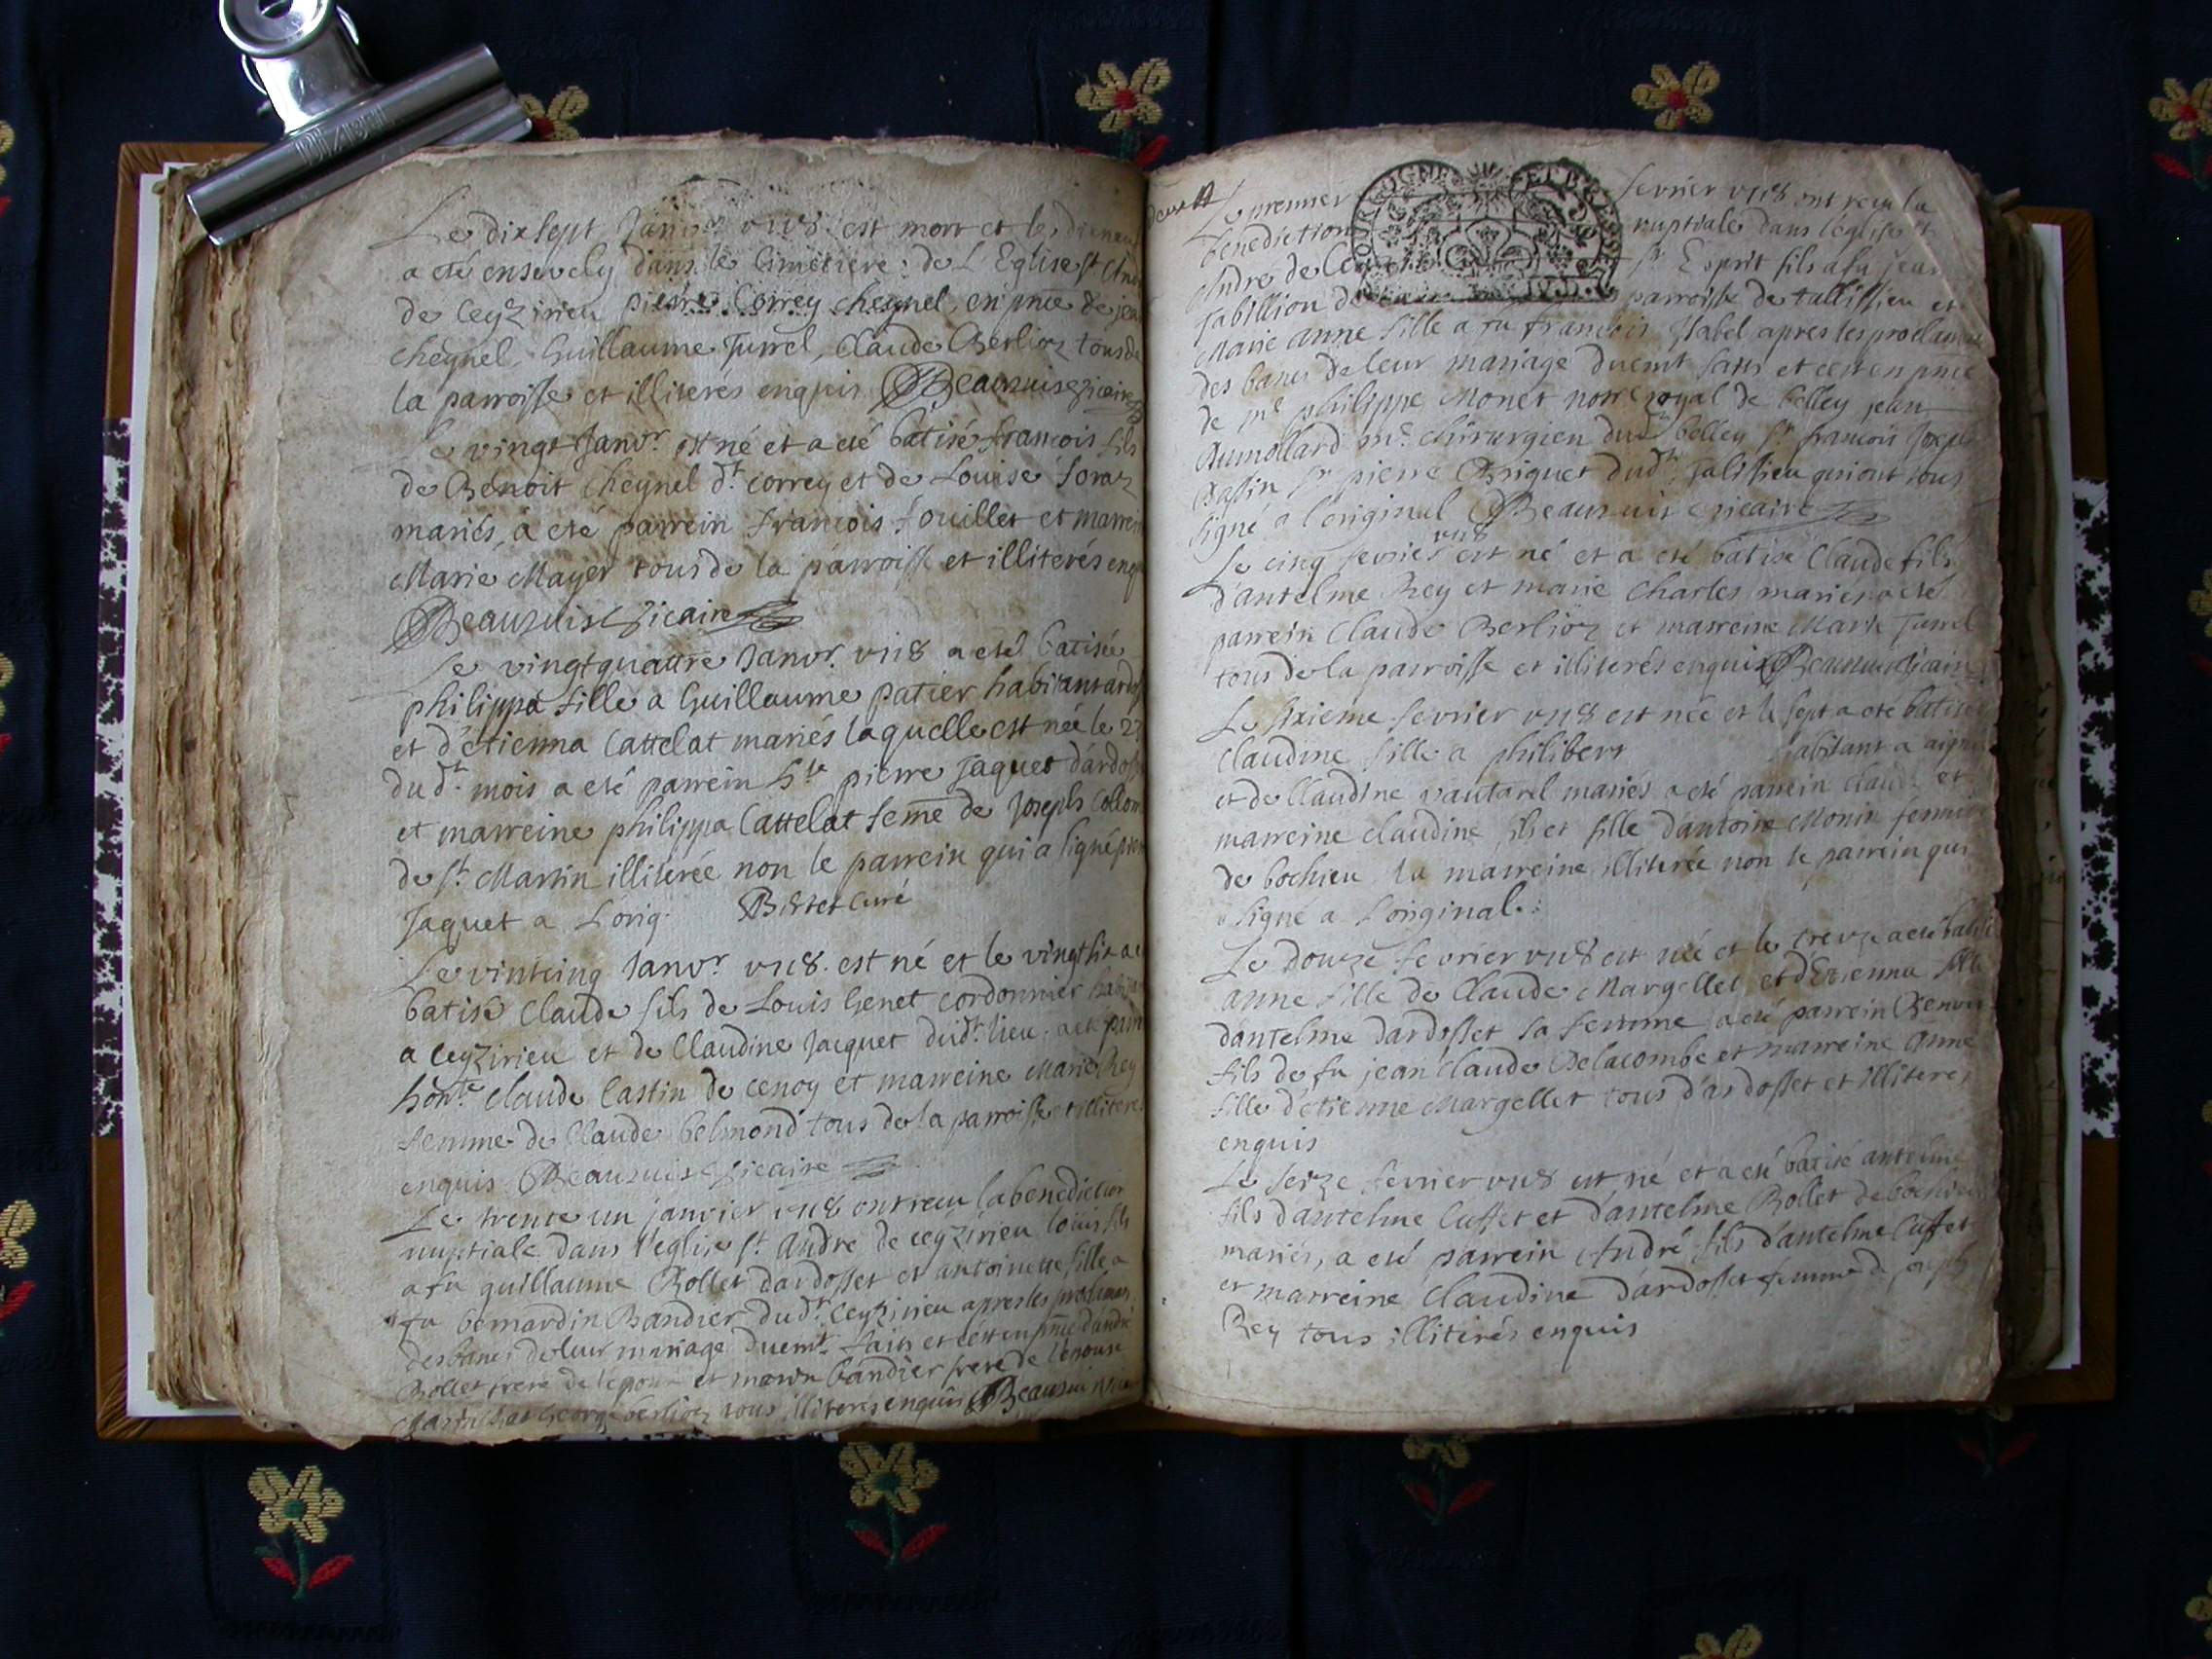 Le dix sept Janvr. 1718 est mort et le dixneuf
a eté ensevely dans le cimetiere de L'Eglise st
de Ceyzirieu pierre Correy cheynel, en pnce de
cheynel Guillaume Jurrel, Claude Berlioz tous de
la parroisse et illiterés enquis Beauzuis vicaire
Le vingt Janvr. est né et a eté batisé francois fils
de Benoit Cheynel dt. correy et de Louise
mariés, a eté parrein francois fouillet et marrei
Marie Mayer tous de la parroisse et illiterés enq
Beauzuis vicaire
Le vingtquattre Janvr. 1718 a eté batisée
philippa fille a Guillaume patier habitant
et d'etienna Cattelat mariés laquelle est née le 2
dudt. mois a eté parrein hte pierre Jaquet d'ardos
et marreine philippa Cattelat feme de Joseph Collom
de st. Martin illiterée non le parrein qui a signé
Jaquet a L'orig. curé
Le vintcinq Janvr. 1718. est né et le vingtsix a e
batisé Claude fils de Louis Genet cordonnier habi
a ceyzirieu et de Claudine Jacquet dudt. lieu. a eté parr
honte. claude Castin de cenoy et marreine Marie Rey
femme de Claude belmond tous de la parroisse et illitere
enquis Beauzuis vicaire
Le trente un janvier 1718 ont receu la benediction
nuptiale dans l'eglise st. André de ceyzirieu louis fils
a fu guillaume Rollet dardosset et antoinette fille a
fu bernardin Bandier dudt. ceyzirieu apres les proclamas
des bancs de leur mariage duemt. faits et c'est en pnce d'andré
Rollet frere de l'epoux et bandier frere de l'epouse
George berlioz tous illiterés enquis Beauzuis
Le premier fevrier 1718 ont receu la
benediction nuptiale dans l'eglise st
Andre de Cey sr. Esprit fils a fu jean
Tabillion parroisse de tallissieu et
Marie anne fille a fu francois Jsabel apres les proclama
des bancs de leur mariage duemt faits et c'est en pnce
de me philippe Monet notre royal de belley jean
Aumollard me. chirurgien dudt belley sr francois Joseph
Bassin sr pierre Briquet dudt. Talissieu qui ont tous
signé a l'original Beauzuis vicaire
Le cinq fevrier 1718 est né et a eté batisé Claude fils
d'antelme Rey et marie Charles mariés a eté
parrein Claude Berlioz et marreine Marie Jurrel
tous de la parroisse et illiterés enquis Beauzuis vicaire
Le sixieme fevrier 1718 est née et le sept a eté batisée
Claudine fille a philibert habitant a aignoz
et de Claudine vautarel mariés a eté parrein claude et
marreine claudine fils et fille d'antoine Monin
de bochieu la marreine illiterée non le parrein qui
signé a l'original.
Le douze fevrier 1718 est née et le treize a eté batisé
anne fille de Claude Margellet et d'Etienna fille
dantelme dardosset sa femme, a eté parrein Benoit
fils de fu jean claude Delacombe et marreine anne
fille d'etienne Margellet tous d'ardosset et illiteres
enquis
Le seize fevrier 1718 est né et a eté batisé antelme
fils d'antelme Cusset et d'antelme Rollet de bochieu
mariés, a eté parrein André fils d'antelme Cusset
et marreine Claudine d'ardosset femme de joseph
Rey tous illiterés enquis